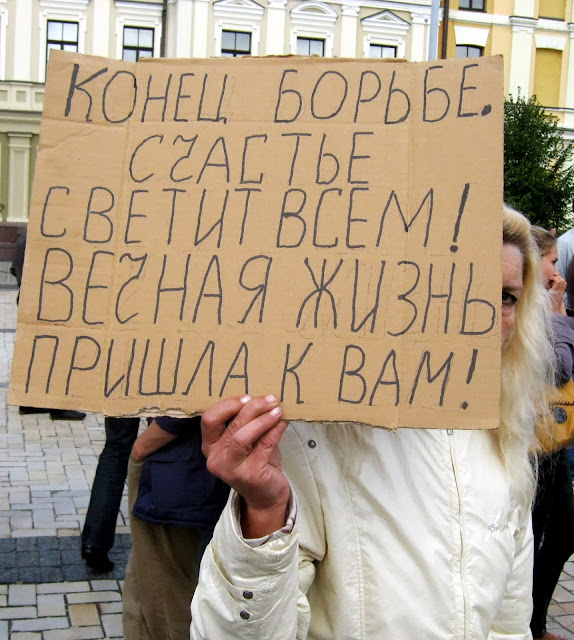 КОНЕЦ БОРЬБЕ.
СЧАСТЬЕ
СВЕТИТ ВСЕМ!
ВЕЧНАЯ ЖИЗНЬ
ПРИШЛА К ВАМ!